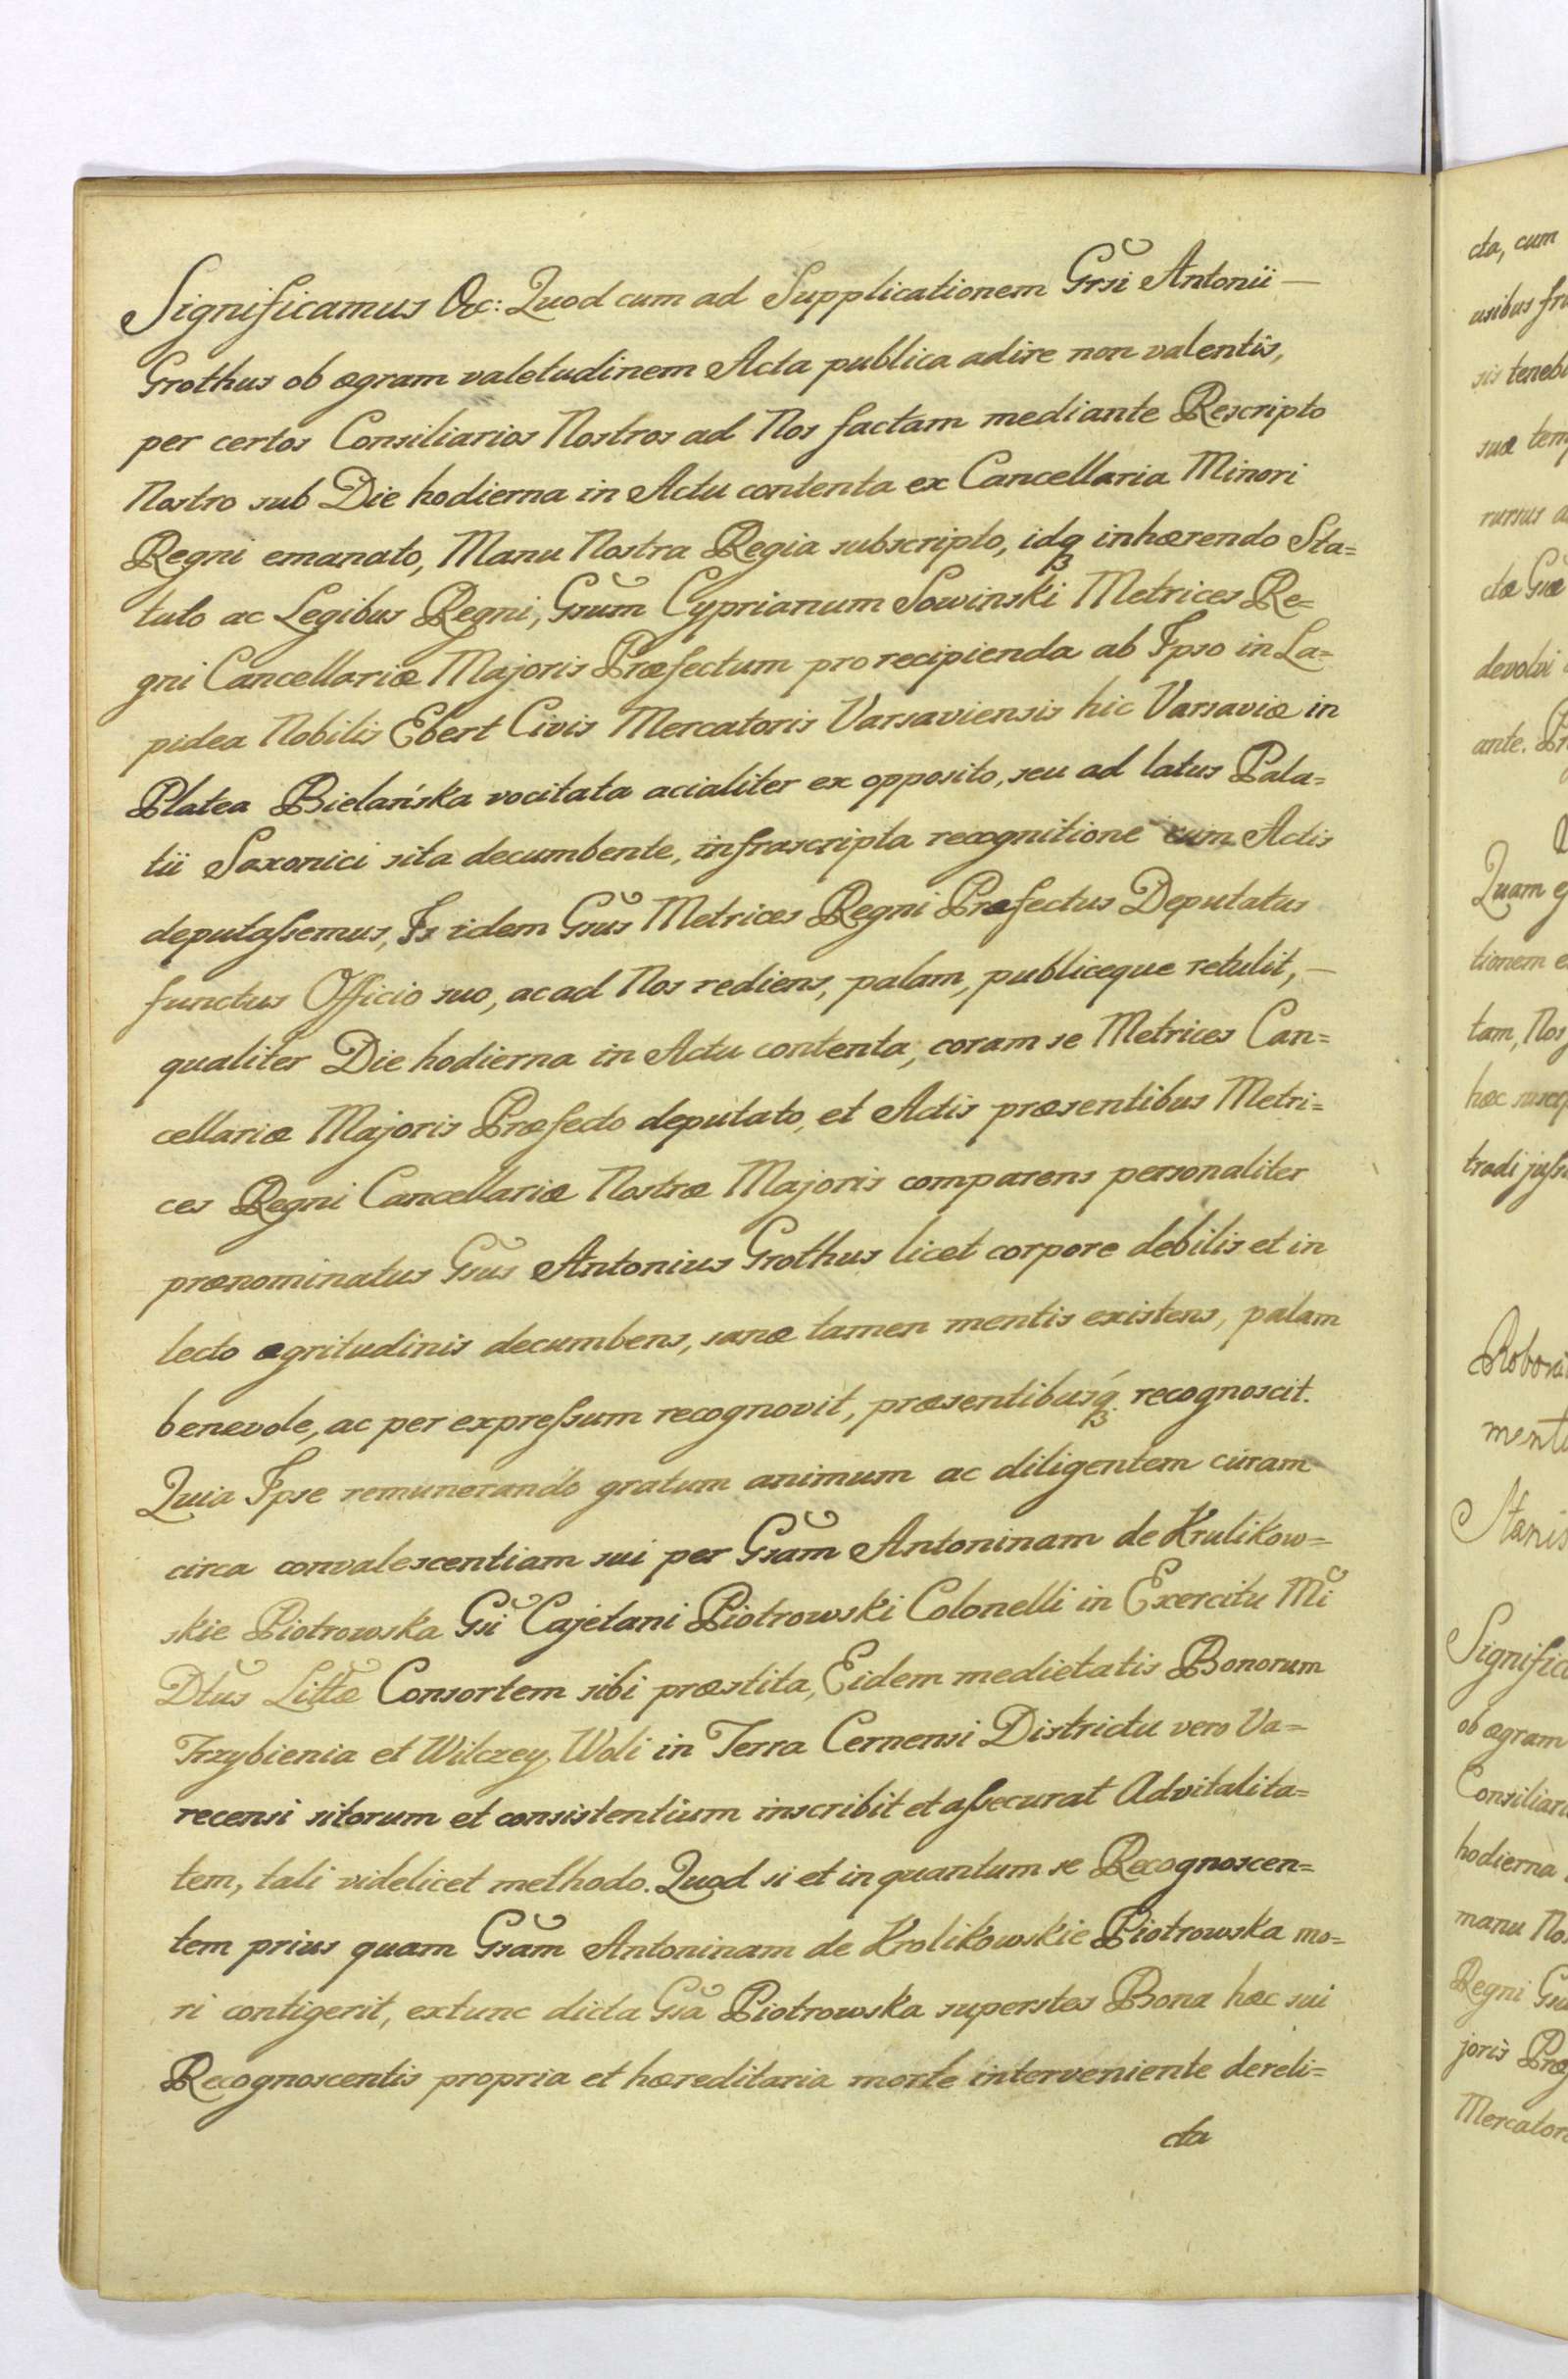 Significamus &c: Quod cum ad Supplicationem Grsi Antonii —
Grothus ob ægram valetudinem Acta publica adire non valentis,
per certos Consiliarios Nostros ad Nos factam mediante Rescripto
Nostro sub Die hodierna in Actu contenta ex Cancellaria Minori
Regni emanato, Manu Nostra Regia subscripto, idq inhærendo Sta=
tuto ac Legibus Regni, Gsum Cyprianum Sowinski Metrices Re=
gni Cancellariæ Majoris Præfectum pro recipienda ab Ipso in La=
pidea Nobilis Ebert Civis Mercatoris Varsaviensis hic Varsaviæ in
Platea Bielańska vocitata acialiter ex opposito, seu ad latus Pala=
tii Saxonici sita decumbente, infrascripta recognitione cum Actis
deputaſsemus, Is idem Gsus Metrices Regni Præfectus Deputatus
functus Officio suo, ac ad Nos rediens, palam, publiceque retulit, —
qualiter Die hodierna in Actu contenta, coram se Metrices Can=
cellariæ Majoris Præfecto deputato, et Actis præsentibus Metri=
ces Regni Cancellariæ Nostræ Majoris comparens personaliter
prænominatus Gsus Antonius Grothus licet corpore debilis et in
lecto ægritudinis decumbens, sanæ tamen mentis existens, palam
benevole, ac per expreſsum recognovit, præsentibusq recognoscit.
Quia Ipse remunerando gratum animum ac diligentem curam
circa convalescentiam sui per Gsam Antoninam de Krulikow=
skie Piotrowska Gsi Cajetani Piotrowski Colonelli in Exercitu Mi
Dtus Littæ Consortem sibi præstita, Eidem medietatis Bonorum
Trzybienia et Wilczey Woli in Terra Cernensi Districtu vero Va=
recensi sitorum et consistentium inscribit et aſsecurat Advitalita=
tem, tali videlicet methodo. Quod si et in quantum se Recognoscen=
tem prius quam Gsam Antoninam de Krolikowskie Piotrowska mo=
ri contigerit, extunc dicta Gsa Piotrowska superstes Bona hæc sui
Recognoscentis propria et hæreditaria morte interveniente dereli=
cta
cta, cum
usibus
sis
suæ
rursus
ctæ Gsæ
devolvi
ante.
Quam
tionem
tam, Nos
hæc
tradi
Stanis
ob ægram
hodierna
manu
Regni
joris